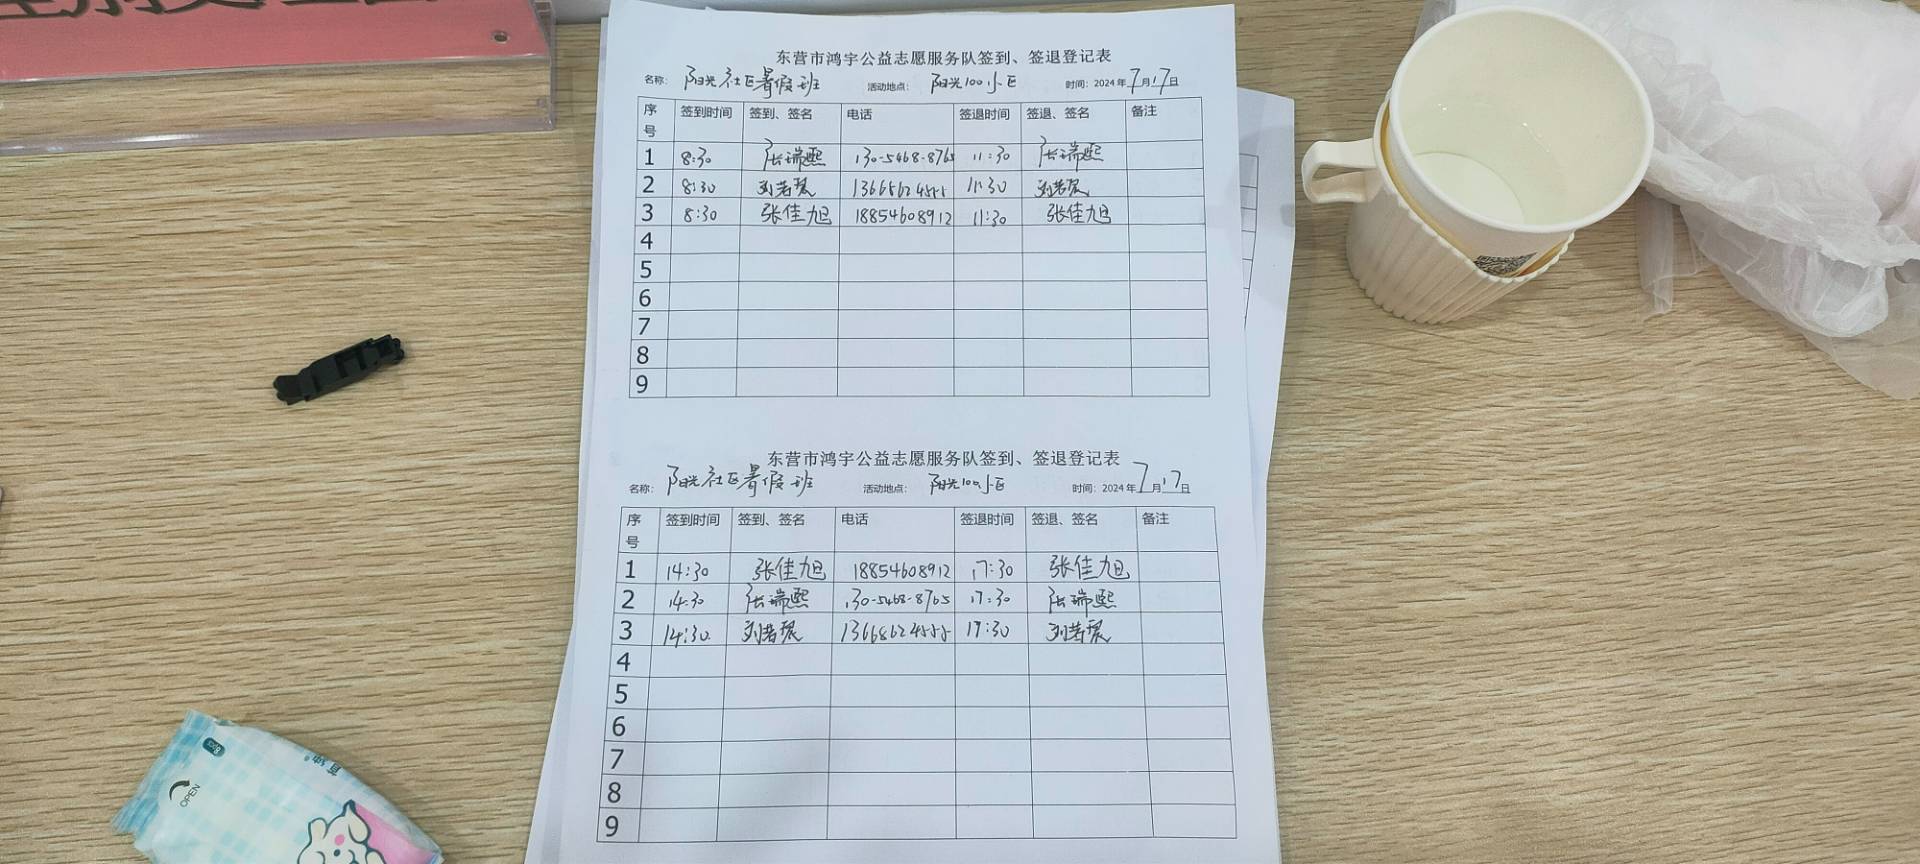 东营市鸿宇公益志愿服务队签到、签退登记表
名称： 阳光社区暑假班 活动地点： 阳光100小区 时间：2024年7月17日
序号 签到时间 签到、签名 电话 签退时间 签退、签名 备注
1 8:30 张瑞熙 130-5468-8765 11:30 张瑞熙
2 8:30 刘若宸 13668624555 11:30 刘若宸
3 8:30 张佳旭 18854608912 11:30 张佳旭
4
5
6
7
8
9
东营市鸿宇公益志愿服务队签到、签退登记表
名称： 阳光社区暑假班 活动地点： 阳光100小区 时间：2024年7月17日
序号 签到时间 签到、签名 电话 签退时间 签退、签名 备注
1 14:30 张佳旭 18854608912 17:30 张佳旭
2 14:30 张瑞熙 130-5468-8765 17:30 张瑞熙
3 14:30 刘若宸 13668624555 17:30 刘若宸
4
5
6
7
8
9
8pcs
OPEN